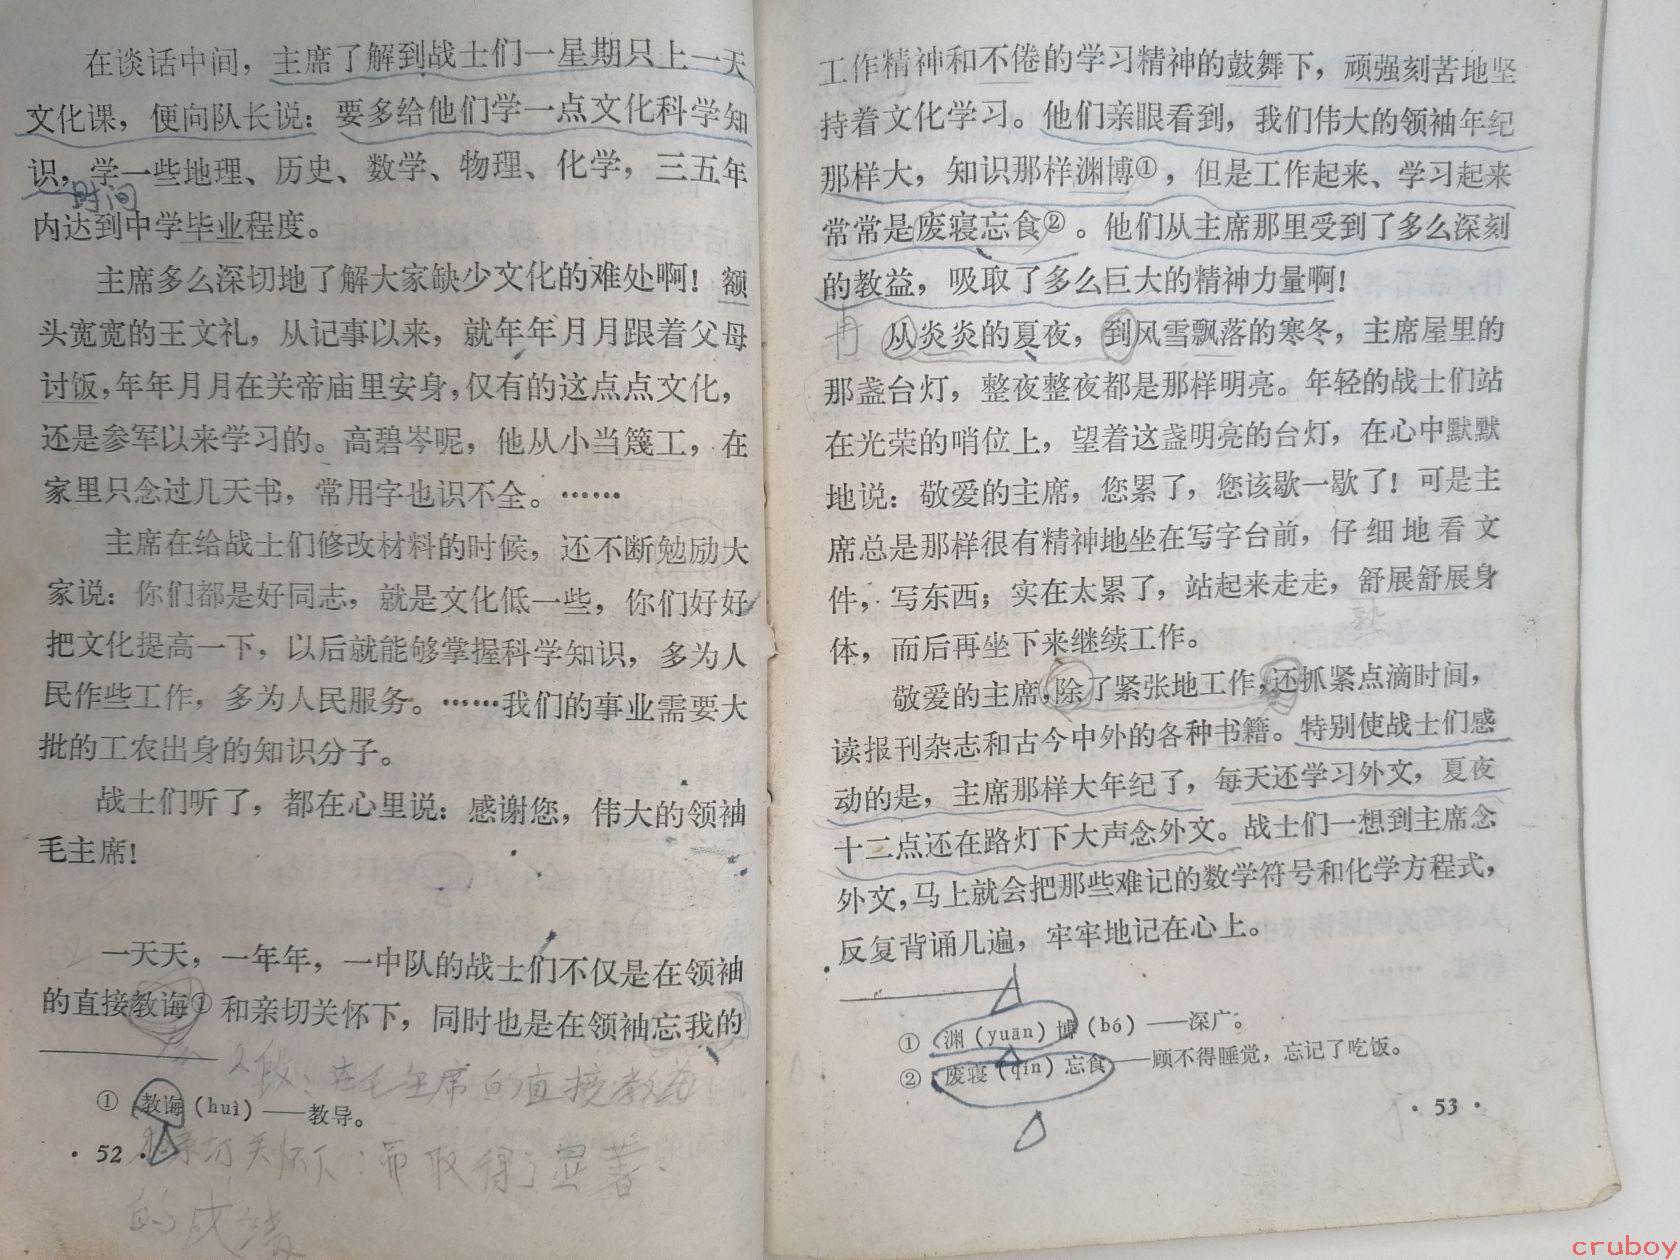 在谈话中间，主席了解到战士们一星期只上一天
文化课，便向队长说：要多给他们学一点文化科学知
识，学一些地理、历史、数学、物理、化学，三五年
时间
内达到中学毕业程度。
主席多么深切地了解大家缺少文化的难处啊！额
头宽宽的王文礼，从记事以来，就年年月月跟着父母
讨饭，年年月月在关帝庙里安身，仅有的这点点文化，
还是参军以来学习的。高碧岑呢，他从小当篾工，在
家里只念过几天书，常用字也识不全。……
主席在给战士们修改材料的时候，还不断勉励大
家说：你们都是好同志，就是文化低一些，你们好好
把文化提高一下，以后就能够掌握科学知识，多为人
民作些工作，多为人民服务。……我们的事业需要大
批的工农出身的知识分子。
战士们听了，都在心里说：感谢您，伟大的领袖
毛主席！
一天天，一年年，一中队的战士们不仅是在领袖
的直接教诲①和亲切关怀下，同时也是在领袖忘我的
2段：在毛主席的直接教
① 教诲（huì）——教导。
亲切关怀下：而取得了显著
· 52 ·
的成绩
工作精神和不倦的学习精神的鼓舞下，顽强刻苦地坚
持着文化学习。他们亲眼看到，我们伟大的领袖年纪
那样大，知识那样渊博①，但是工作起来、学习起来
常常是废寝忘食②。他们从主席那里受到了多么深刻
的教益，吸取了多么巨大的精神力量啊！
从炎炎的夏夜，到风雪飘落的寒冬，主席屋里的
那盏台灯，整夜整夜都是那样明亮。年轻的战士们站
在光荣的哨位上，望着这盏明亮的台灯，在心中默默
地说：敬爱的主席，您累了，您该歇一歇了！可是主
席总是那样很有精神地坐在写字台前，仔细地看文
件，写东西；实在太累了，站起来走走，舒展舒展身
体，而后再坐下来继续工作。
敬爱的主席，除了紧张地工作，还抓紧点滴时间，
读报刊杂志和古今中外的各种书籍。特别使战士们感
动的是，主席那样大年纪了，每天还学习外文，夏夜
十二点还在路灯下大声念外文。战士们一想到主席念
外文，马上就会把那些难记的数学符号和化学方程式，
反复背诵几遍，牢牢地记在心上。
① 渊（yuān）博（bó）——深广。
② 废寝（qǐn）忘食——顾不得睡觉，忘记了吃饭。
· 53 ·
cruboy